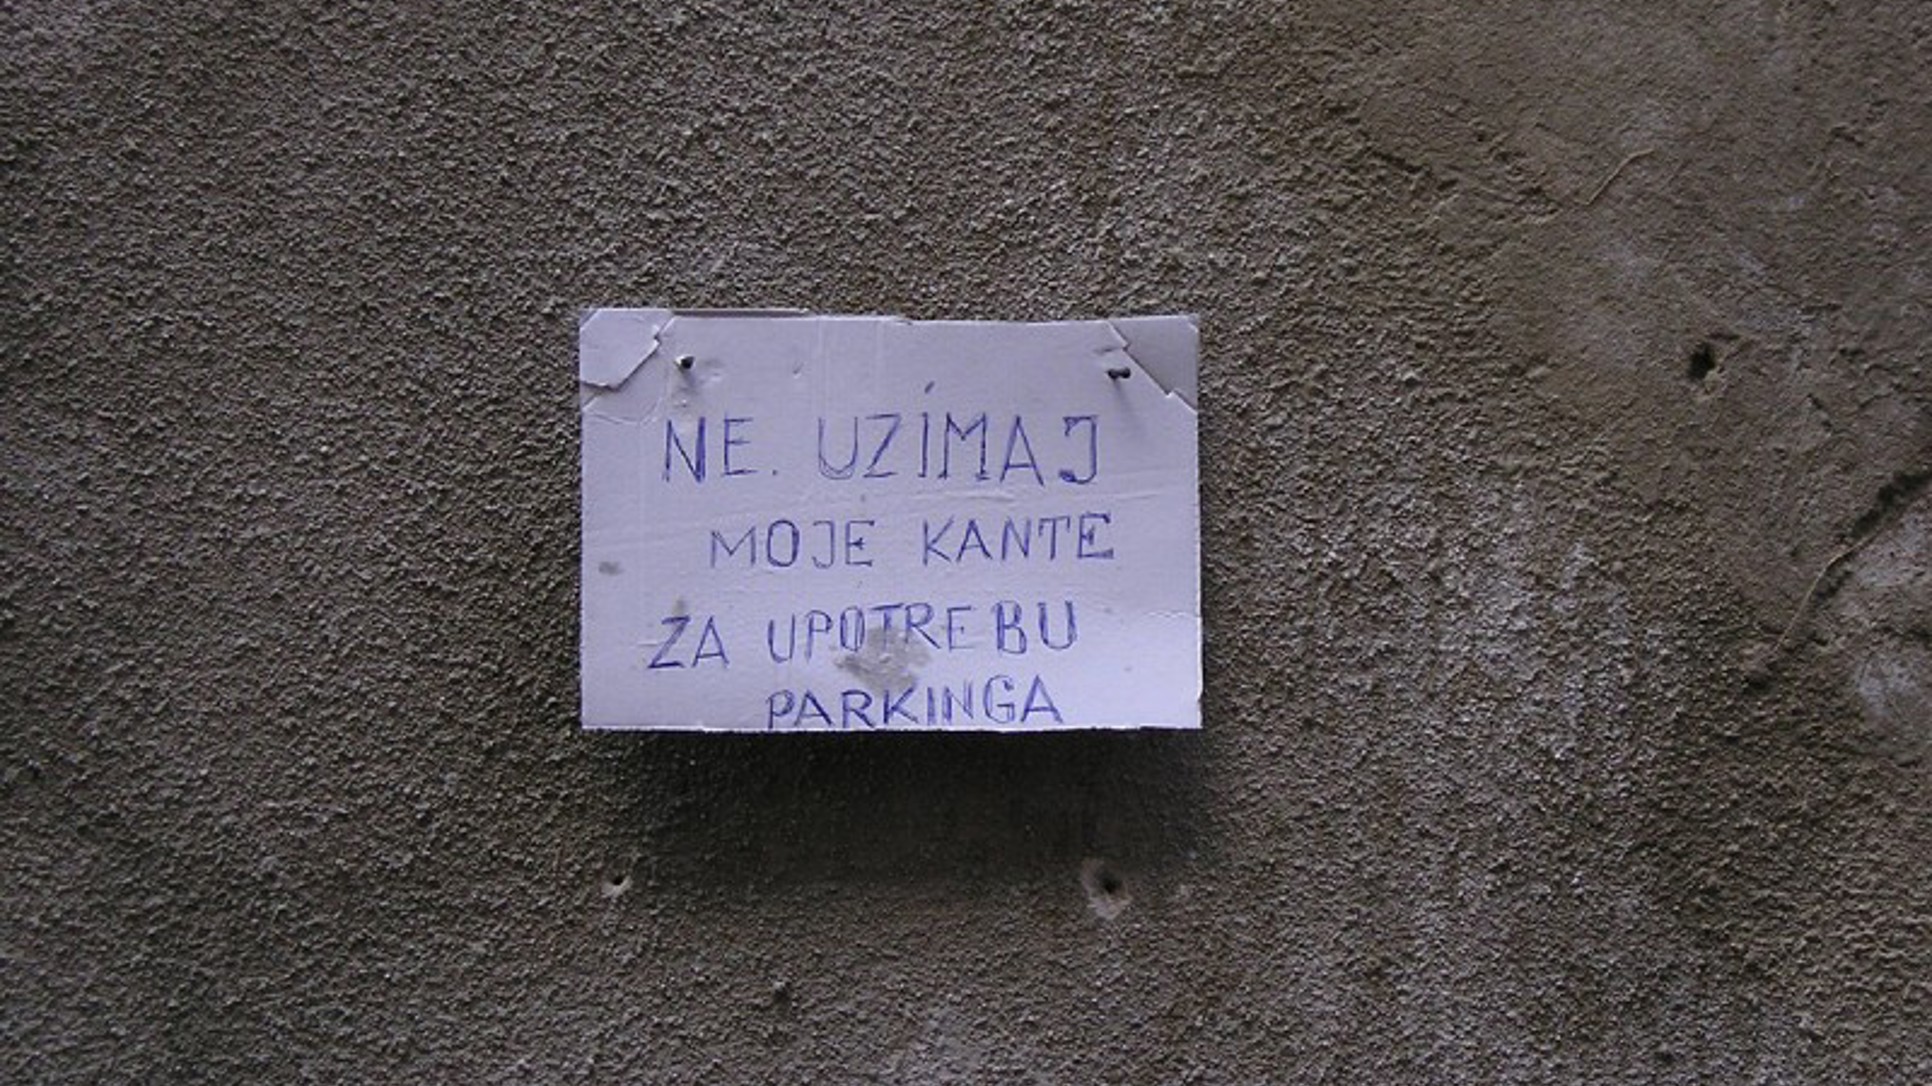 NE. UZIMAJ
MOJE KANTE
ZA UPOTREBU
PARKINGA